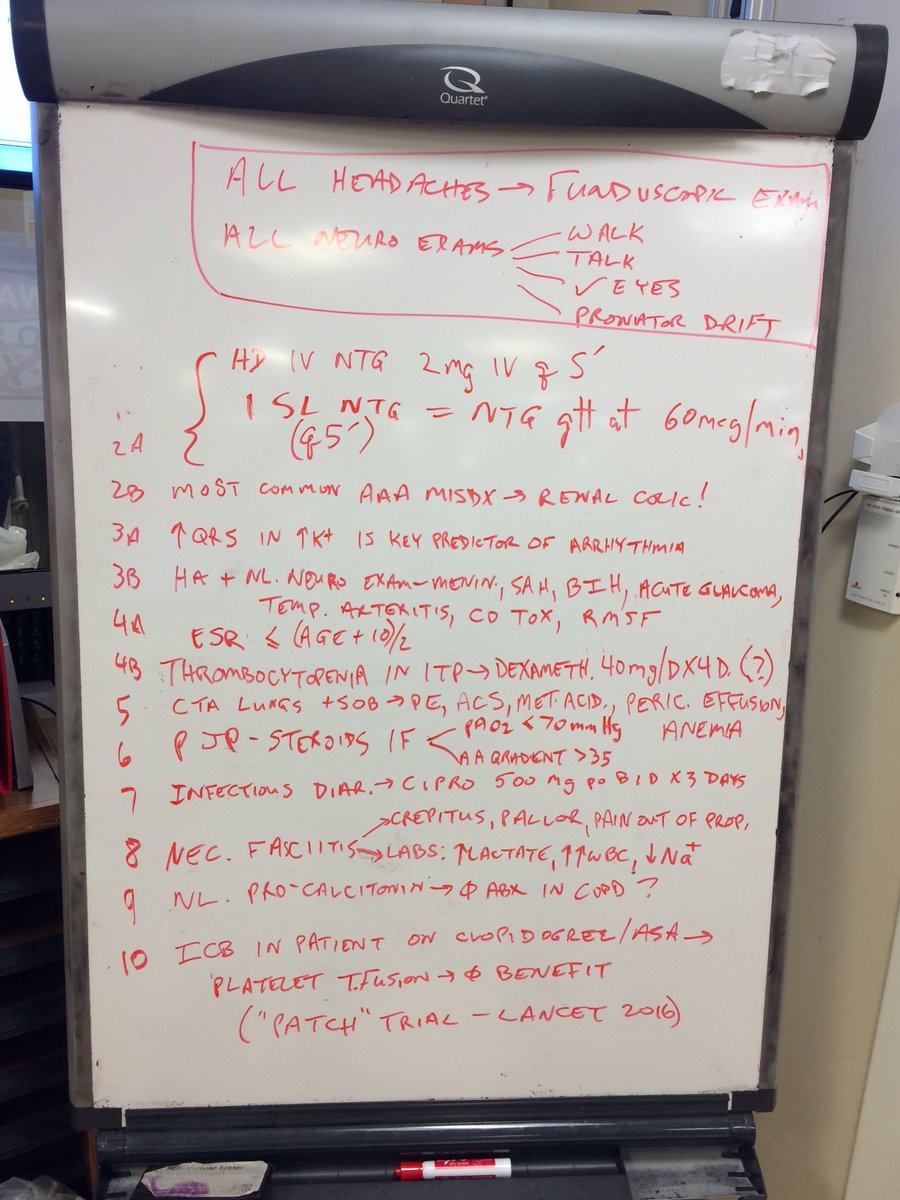 Quartet
ALL HEADACHES → FUNDUSCOPIC EXAM
ALL NEURO EXAMS
WALK
TALK
✓ EYES
PRONATOR DRIFT
HD IV NTG 2mg IV q 5′
1 SL NTG = NTG gtt at 60mcg/min,
(q5′)
2A
2B MOST COMMON AAA MISDX → RENAL COLIC!
3A ↑QRS IN ↑K+ IS KEY PREDICTOR OF ARRHYTHMIA
3B HA + NL. NEURO EXAM – MENIN., SAH, BIH, ACUTE GLAUCOMA,
TEMP. ARTERITIS, CO TOX, RMSF
4A ESR ≤ (AGE + 10)/2
4B THROMBOCYTOPENIA IN ITP → DEXAMETH. 40mg/D X 4 D. (?)
5 CTA LUNGS + SOB → PE, ACS, MET. ACID., PERIC. EFFUSION,
ANEMIA
6 PJP – STEROIDS IF PAO2 < 70mmHg
AA GRADIENT > 35
7 INFECTIOUS DIAR. → CIPRO 500 mg po BID X 3 DAYS
8 NEC. FASCIITIS → CREPITUS, PALLOR, PAIN OUT OF PROP.
→ LABS: ↑LACTATE, ↑↑WBC, ↓Na+
9 NL. PRO-CALCITONIN → ϕ ABX IN COPD ?
10 ICB IN PATIENT ON CLOPIDOGREL/ASA →
PLATELET T.FUSION → ϕ BENEFIT
("PATCH" TRIAL – LANCET 2016)